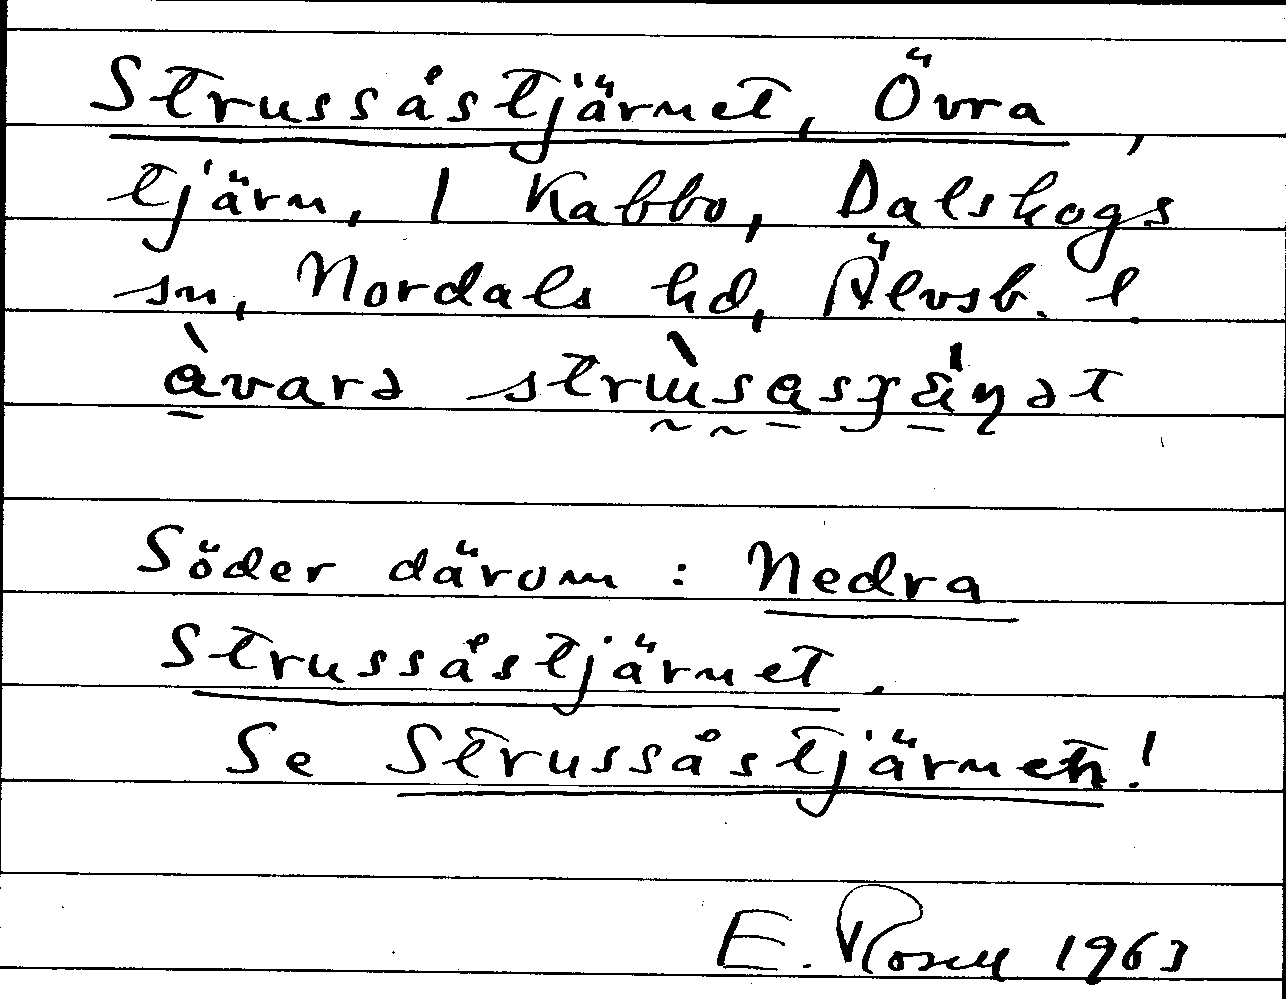 Strussåstjärnet, Övra,
tjärn, 1 Kabbo, Dalskogs
sn, Nordals hd, Älvsb. l.
Söder därom: Nedra
Strussåstjärnet.
Se Strussåstjärnen!
E. Rosell 1963